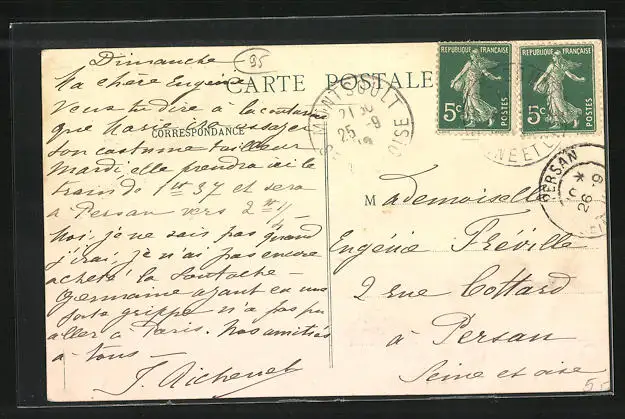 Dimanche
95
Ma chère Eugénie
CARTE POSTALE
Veux tu dire à la couturière
que Marie ira essayer
CORRESPONDANCE
son costume tailleur
mardi, elle prendra ici le
train de 1h 37 et sera
à Persan vers 2h 1/2
Moi, je ne sais pas quand
j'irai, je n'ai pas encore
acheté la Soutache –
Germaine ayant eu une
forte grippe n'a pas pu
aller à Paris. Nos amitiés
à tous –
J.
REPUBLIQUE FRANÇAISE
5c
POSTES
REPUBLIQUE FRANÇAISE
5c
POSTES
MONTSOULT
21
25 -9
OISE
PERSAN
26 -9
Mademoiselle
Eugénie Fréville
2 rue Cottard
à Persan
Seine et oise